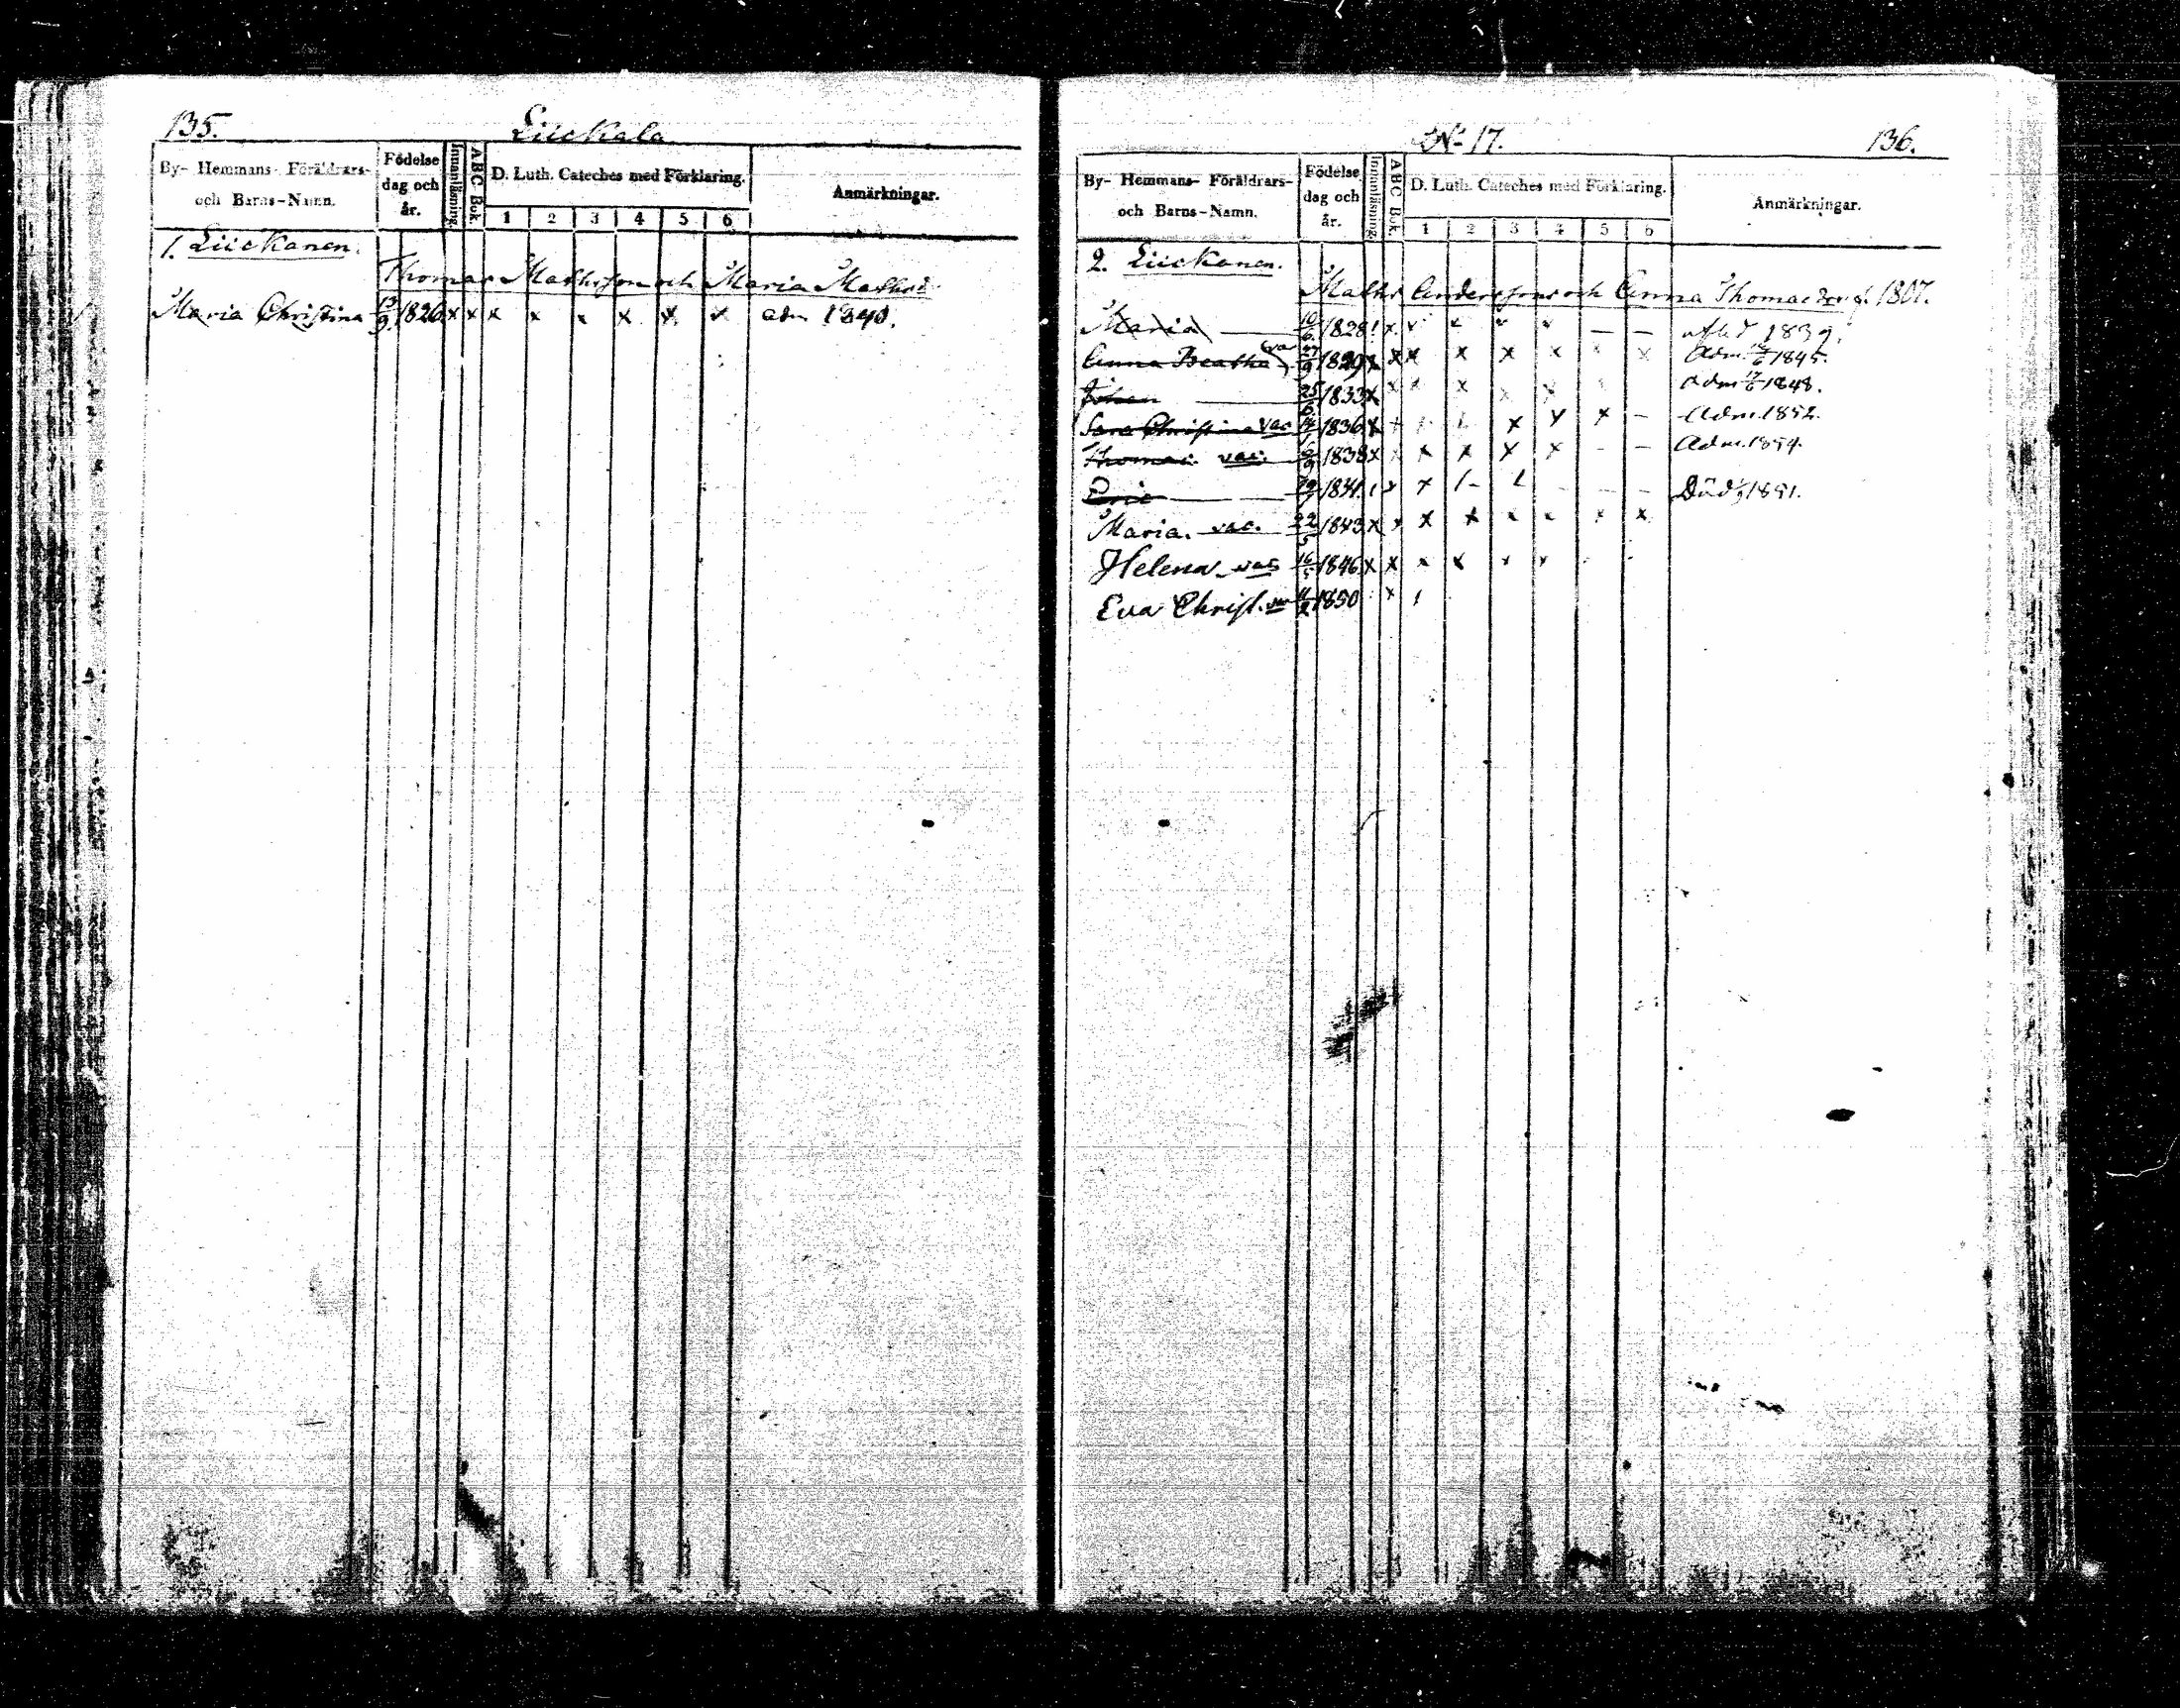 135. Liickala
By- Hemmans- Föräldrars- och Barns-Namn. Födelse dag och år. Innanläsning. ABC Bok. D. Luth. Cateches med Förklaring. Anmärkningar.
1 2 3 4 5 6
1. Liickanen.
Thomas Mathsson och Maria Mathsd.
Maria Christina 13/9 1826 x x x x x x x x adm 1840.
No 17. 136.
By- Hemmans- Föräldrars- och Barns-Namn. Födelse dag och år. Innanläsning. ABC Bok. D. Luth. Cateches med Förklaring. Anmärkningar.
1 2 3 4 5 6
2. Liickanen.
Maths Anderssons och Anna Thomae 1807.
Maria 10/6 1828 — — 1839.
Anna Beatha vac 27/9 1829 x x x x x x x x Adm. 1845.
Johan 25 1833 x x x x x Adm 1848.
Sara Christina vac 14 1836 x x x x — Adm. 1852.
Thomas vac. 1838 x x x x x x — — Adm. 1854.
Eric 1841. x x — — — Död 1851.
Maria. vac. 22/5 1843 x x x x x x x x
Helena vac 16/5 1846 x x x x x x
Eva Christ. vac 1850 x x